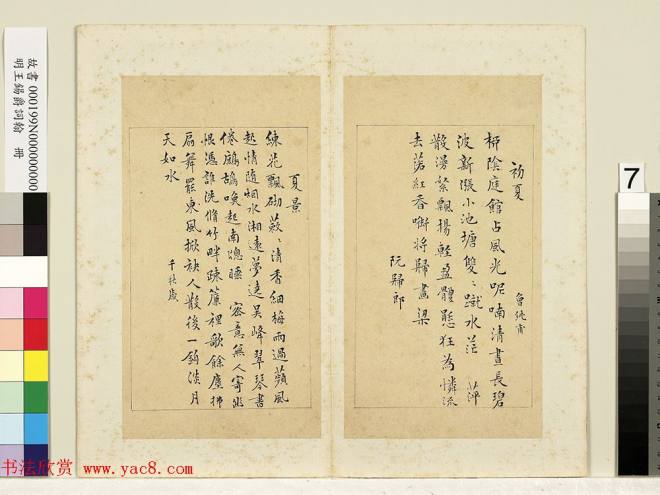 故書 000199N000000000
明王錫爵詞翰 冊
初夏
曾純甫
柳陰庭館占風光呢喃清晝長碧
波新漲小池塘雙〻蹴水茫 萍
散漫絮飄揚輕盈體態狂為憐流
去落紅香啣將歸畫梁
阮歸郎
夏景
楝花飄砌蔌〻清香細梅雨過蘋風
起情隨烟水湘遠夢遶吳峰翠琴書
倦鷓鴣喚起南窗睡 密意無人寄幽
恨憑誰洗脩竹畔疎簾裡歌餘塵拂
扇舞罷東風掀袂人散後一鉤淡月
天如水
千秋歲
7
书法欣赏 www.yac8.com